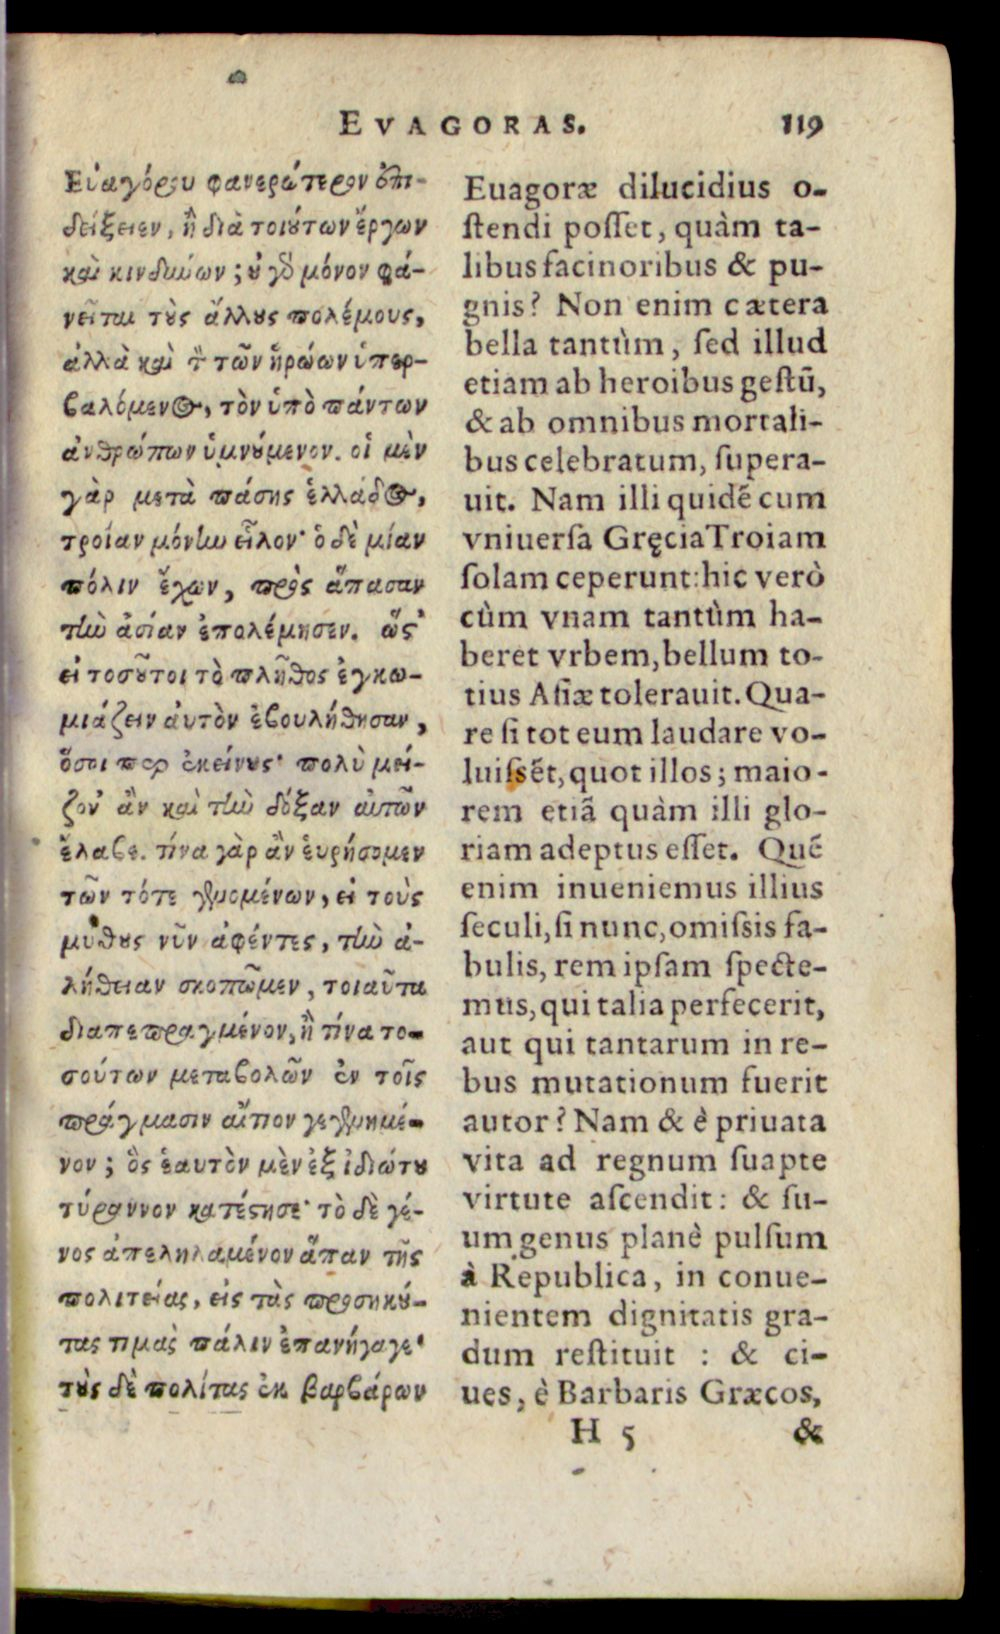 EVAGORAS. 119
Εὐαγόρου φανερώτερον ἐπι-
δείξειεν, ἢ διὰ τοιούτων ἔργων
καὶ κινδύνων; οὐ γὸ μόνον φά-
νεῖται τοὺς ἄλλους πολέμους,
ἀλλὰ καὶ τ̀ τῶν ἡρώων ὑπερ-
βαλόμενος, τὸν ὑπὸ πάντων
ἀνθρώπων ὑμνούμενον. οἱ μὲν
γὰρ μετὰ πάσης ἑλλάδος,
τροίαν μόνην εἷλον· ὁ δὲ μίαν
πόλιν ἔχων, πρὸς ἅπασαν
τὴν ἀσίαν ἐπολέμησεν. ὥς᾽
εἰ τοσοῦτοι τὸ πλῆθος ἐγκω-
μιάζειν αὐτὸν ἐβουλήθησαν,
ὅσοι περ ἐκείνους· πολὺ μεί-
ζον᾽ ἂν καὶ τὴν δόξαν αὐτῶν
ἔλαβε. τίνα γὰρ ἂν εὑρήσομεν
τῶν τότε γενομένων, εἰ τοὺς
μύθους νῦν ἀφέντες, τὴν ἀ-
λήθειαν σκοπῶμεν, τοιαῦτα
διαπεπραγμένον, ἢ τίνα το-
σούτων μεταβολῶν ἐν τοῖς
πράγμασιν αἴτιον γεγενημέ-
νον; ὃς ἑαυτὸν μὲν ἐξ ἰδιώτου
τύραννον κατέστησε· τὸ δὲ γέ-
νος ἀπεληλαμένον ἅπαν τῆς
πολιτείας, εἰς τὰς προσηκού-
τας τιμὰς πάλιν ἐπανήγαγε·
τοὺς δὲ πολίτας ἐκ βαρβάρων
Euagoræ dilucidius o-
ſtendi poſſet, quàm ta-
libus facinoribus & pu-
gnis? Non enim cætera
bella tantùm, ſed illud
etiam ab heroibus geſtū,
& ab omnibus mortali-
bus celebratum, ſupera-
uit. Nam illi quidē cum
vniuerſa Gręcia Troiam
ſolam ceperunt: hic verò
cùm vnam tantùm ha-
beret vrbem, bellum to-
tius Aſiæ tolerauit. Qua-
re ſi tot eum laudare vo-
luiſsēt, quot illos; maio-
rem etiā quàm illi glo-
riam adeptus eſſet. Quē
enim inueniemus illius
ſeculi, ſi nunc, omiſsis fa-
bulis, rem ipſam ſpecte-
mus, qui talia perfecerit,
aut qui tantarum in re-
bus mutationum fuerit
autor? Nam & è priuata
vita ad regnum ſuapte
virtute aſcendit: & ſu-
um genus planè pulſum
à Republica, in conue-
nientem dignitatis gra-
dum reſtituit : & ci-
ues, è Barbaris Græcos,
H 5 &